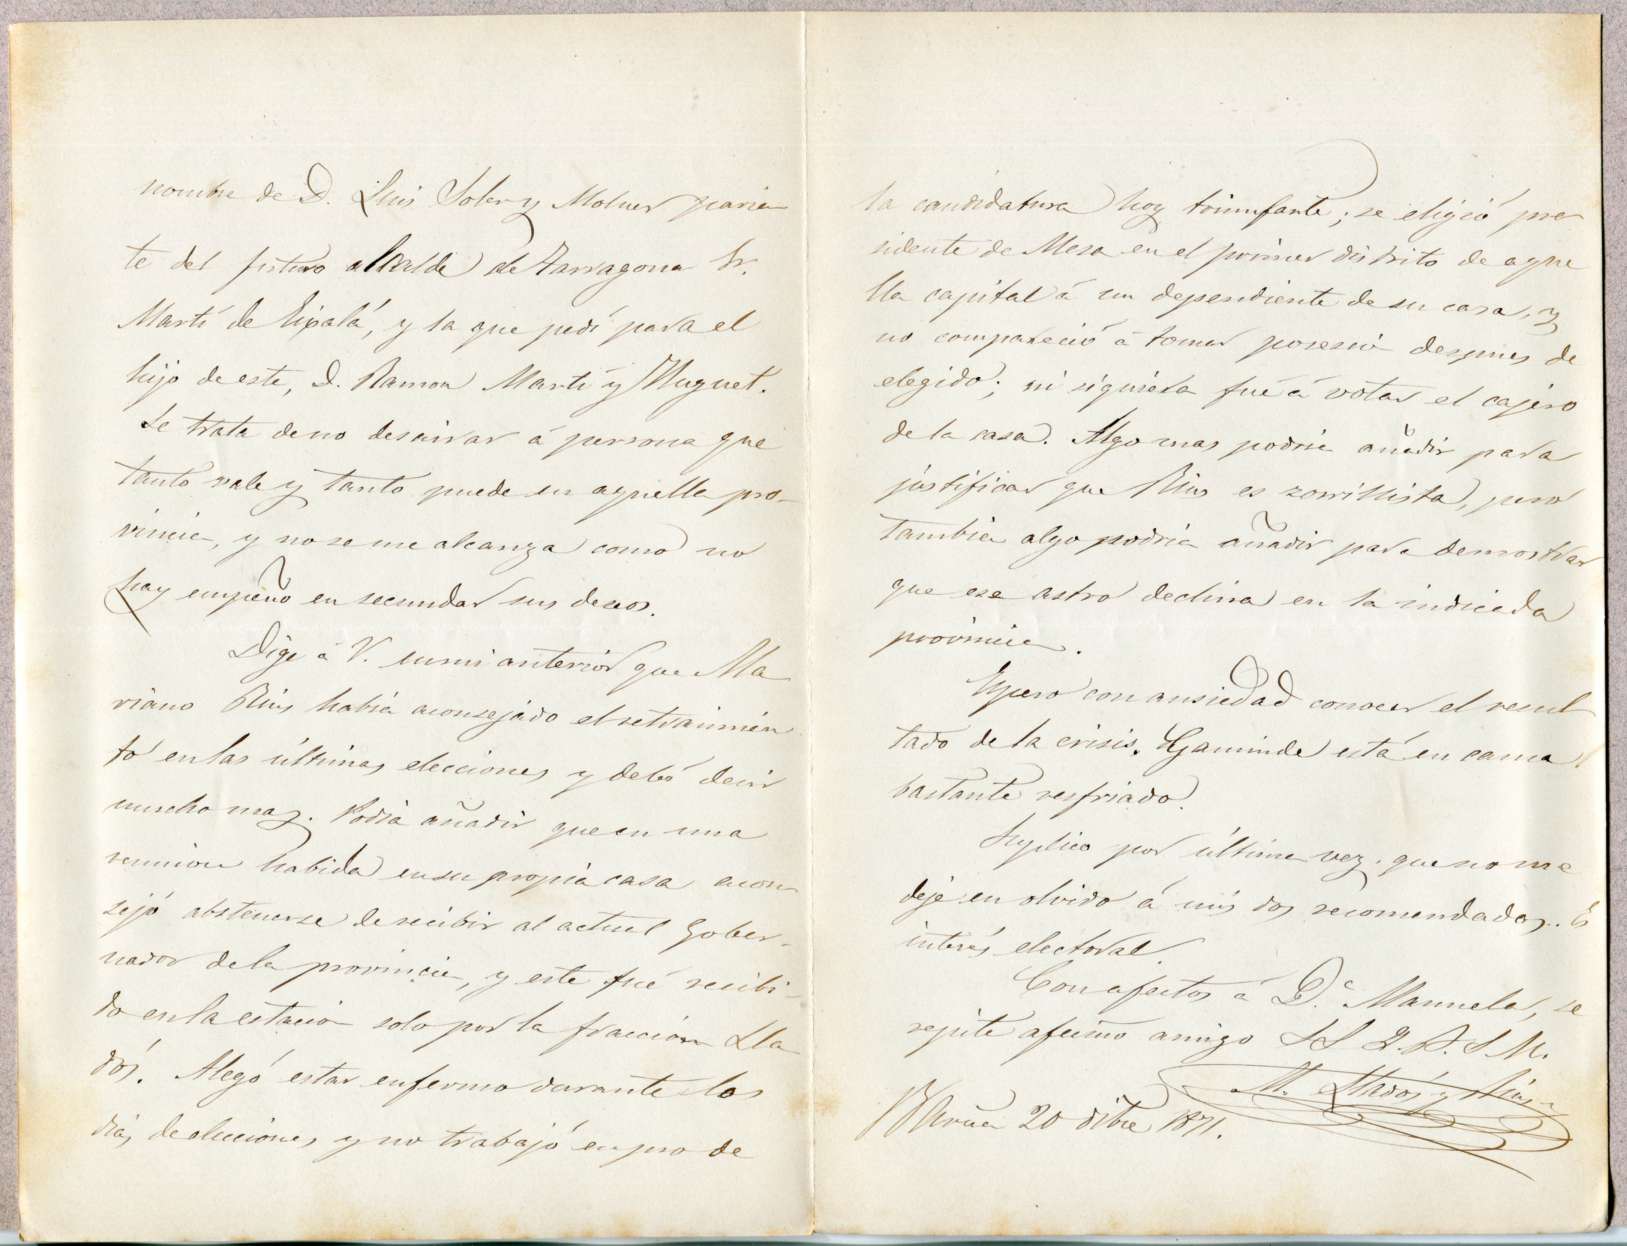 nombre de D. Luis Soler y Moluer parien
te del futuro alcalde de Tarragona Sr.
Martí de Eixalá, y la que pedí para el
hijo de este, D. Ramon Martí y Huguet.
Se trata de no desairar á persona que
tanto vale y tanto puede en aquella pro-
vincia, y no se me alcanza como no
hay empeño en secundar sus deseos.
Dige á V. en mi anterior que Ma
riano Rius habia aconsejado el retraimien
to en las últimas elecciones y debó decir
mucho mas. Podia añadir que en una
reunion habida en su propia casa acon-
sejó abstenerse de recibir al actual Gober-
nador de la provincia, y este fué recibi-
do en la estacion solo por la fraccion Lla
dós. Alegó estar enfermo durante los
dias de elecciones y no trabajó en pro de
la candidatura hoy triunfante; se eligió pre
sidente de Mesa en el primer distrito de aque
lla capital á un dependiente de su casa, y
no compareció á tomar posesion despues de
elegido; ni siquiera fué á votar el cajero
de la casa. Algo mas podria añadir para
justificar que Rius es zorrillista, pero
tambien algo podria añadir para demostrar
que ese astro declina en la indicada
provincia.
Espero con ansiedad conocer el resul
tado de la crisis. Gaminde está en cama
bastante resfriado.
Suplico por última vez que no me
deje en olvido á mis dos recomendados. Es
interés electoral.
Con afectos á D.ª Manuela, se
repite afmo amigo S S Q. B. S M.
M. Lladós y Rius
Barna 20 dibre 1871.